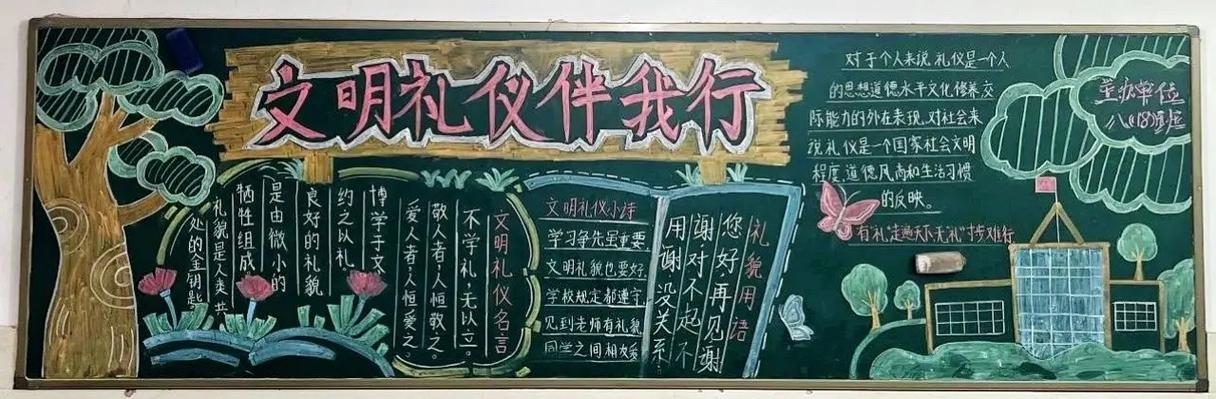 文明礼仪伴我行
文明礼仪名言
不学礼,无以立。
敬人者,人恒敬之。
爱人者,人恒爱之。
博学于文
约之以礼。
良好的礼貌
是由微小的
牺牲组成
礼貌是人类共
处的金钥匙。
文明礼仪小诗
学习争先虽重要,
文明礼貌也要好.
学校规定都遵守
见到老师有礼貌
同学之间相友爱
礼貌用语
您好,再见谢
谢对不起不
用谢没关系
对于个人来说,礼仪是一个人
的思想道德水平文化修养交
际能力的外在表现,对社会来
说礼仪是一个国家社会文明
程度,道德风尚和生活习惯
的反映。
有礼"走遍天下无礼"寸步难行
主办单位
八(18)班